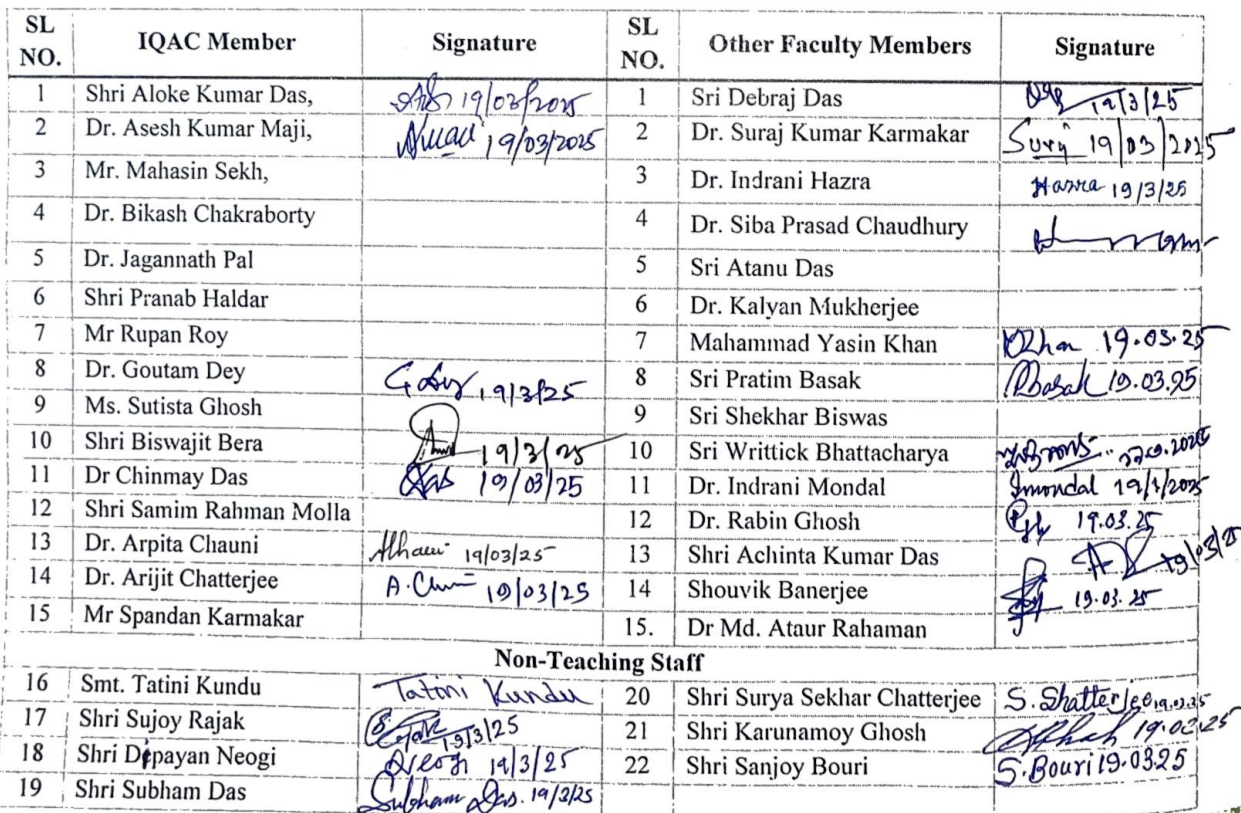 SL NO. IQAC Member Signature SL NO. Other Faculty Members Signature
1 Shri Aloke Kumar Das, 19/03/2025 1 Sri Debraj Das 19/3/25
2 Dr. Asesh Kumar Maji, 19/03/2025 2 Dr. Suraj Kumar Karmakar Suraj 19/03/2025
3 Mr. Mahasin Sekh, 3 Dr. Indrani Hazra Hazra 19/3/25
4 Dr. Bikash Chakraborty 4 Dr. Siba Prasad Chaudhury
5 Dr. Jagannath Pal 5 Sri Atanu Das
6 Shri Pranab Haldar 6 Dr. Kalyan Mukherjee
7 Mr Rupan Roy 7 Mahammad Yasin Khan 19.03.25
8 Dr. Goutam Dey G Dey 19/3/25 8 Sri Pratim Basak PBasak 19.03.25
9 Ms. Sutista Ghosh 9 Sri Shekhar Biswas
10 Shri Biswajit Bera 19/3/25 10 Sri Writtick Bhattacharya
11 Dr Chinmay Das Das 19/03/25 11 Dr. Indrani Mondal Imondal
12 Shri Samim Rahman Molla 12 Dr. Rabin Ghosh 19.03.25
13 Dr. Arpita Chauni 19/03/25 13 Shri Achinta Kumar Das 19/03/25
14 Dr. Arijit Chatterjee 19/03/25 14 Shouvik Banerjee 19.03.25
15 Mr Spandan Karmakar 15. Dr Md. Ataur Rahaman
Non-Teaching Staff
16 Smt. Tatini Kundu Tatini Kundu 20 Shri Surya Sekhar Chatterjee S. Chatterjee 19.03.25
17 Shri Sujoy Rajak 19/3/25 21 Shri Karunamoy Ghosh
18 Shri Dipayan Neogi DNeogi 19/3/25 22 Shri Sanjoy Bouri S. Bouri 19.0325
19 Shri Subham Das Subham Das. 19/3/25